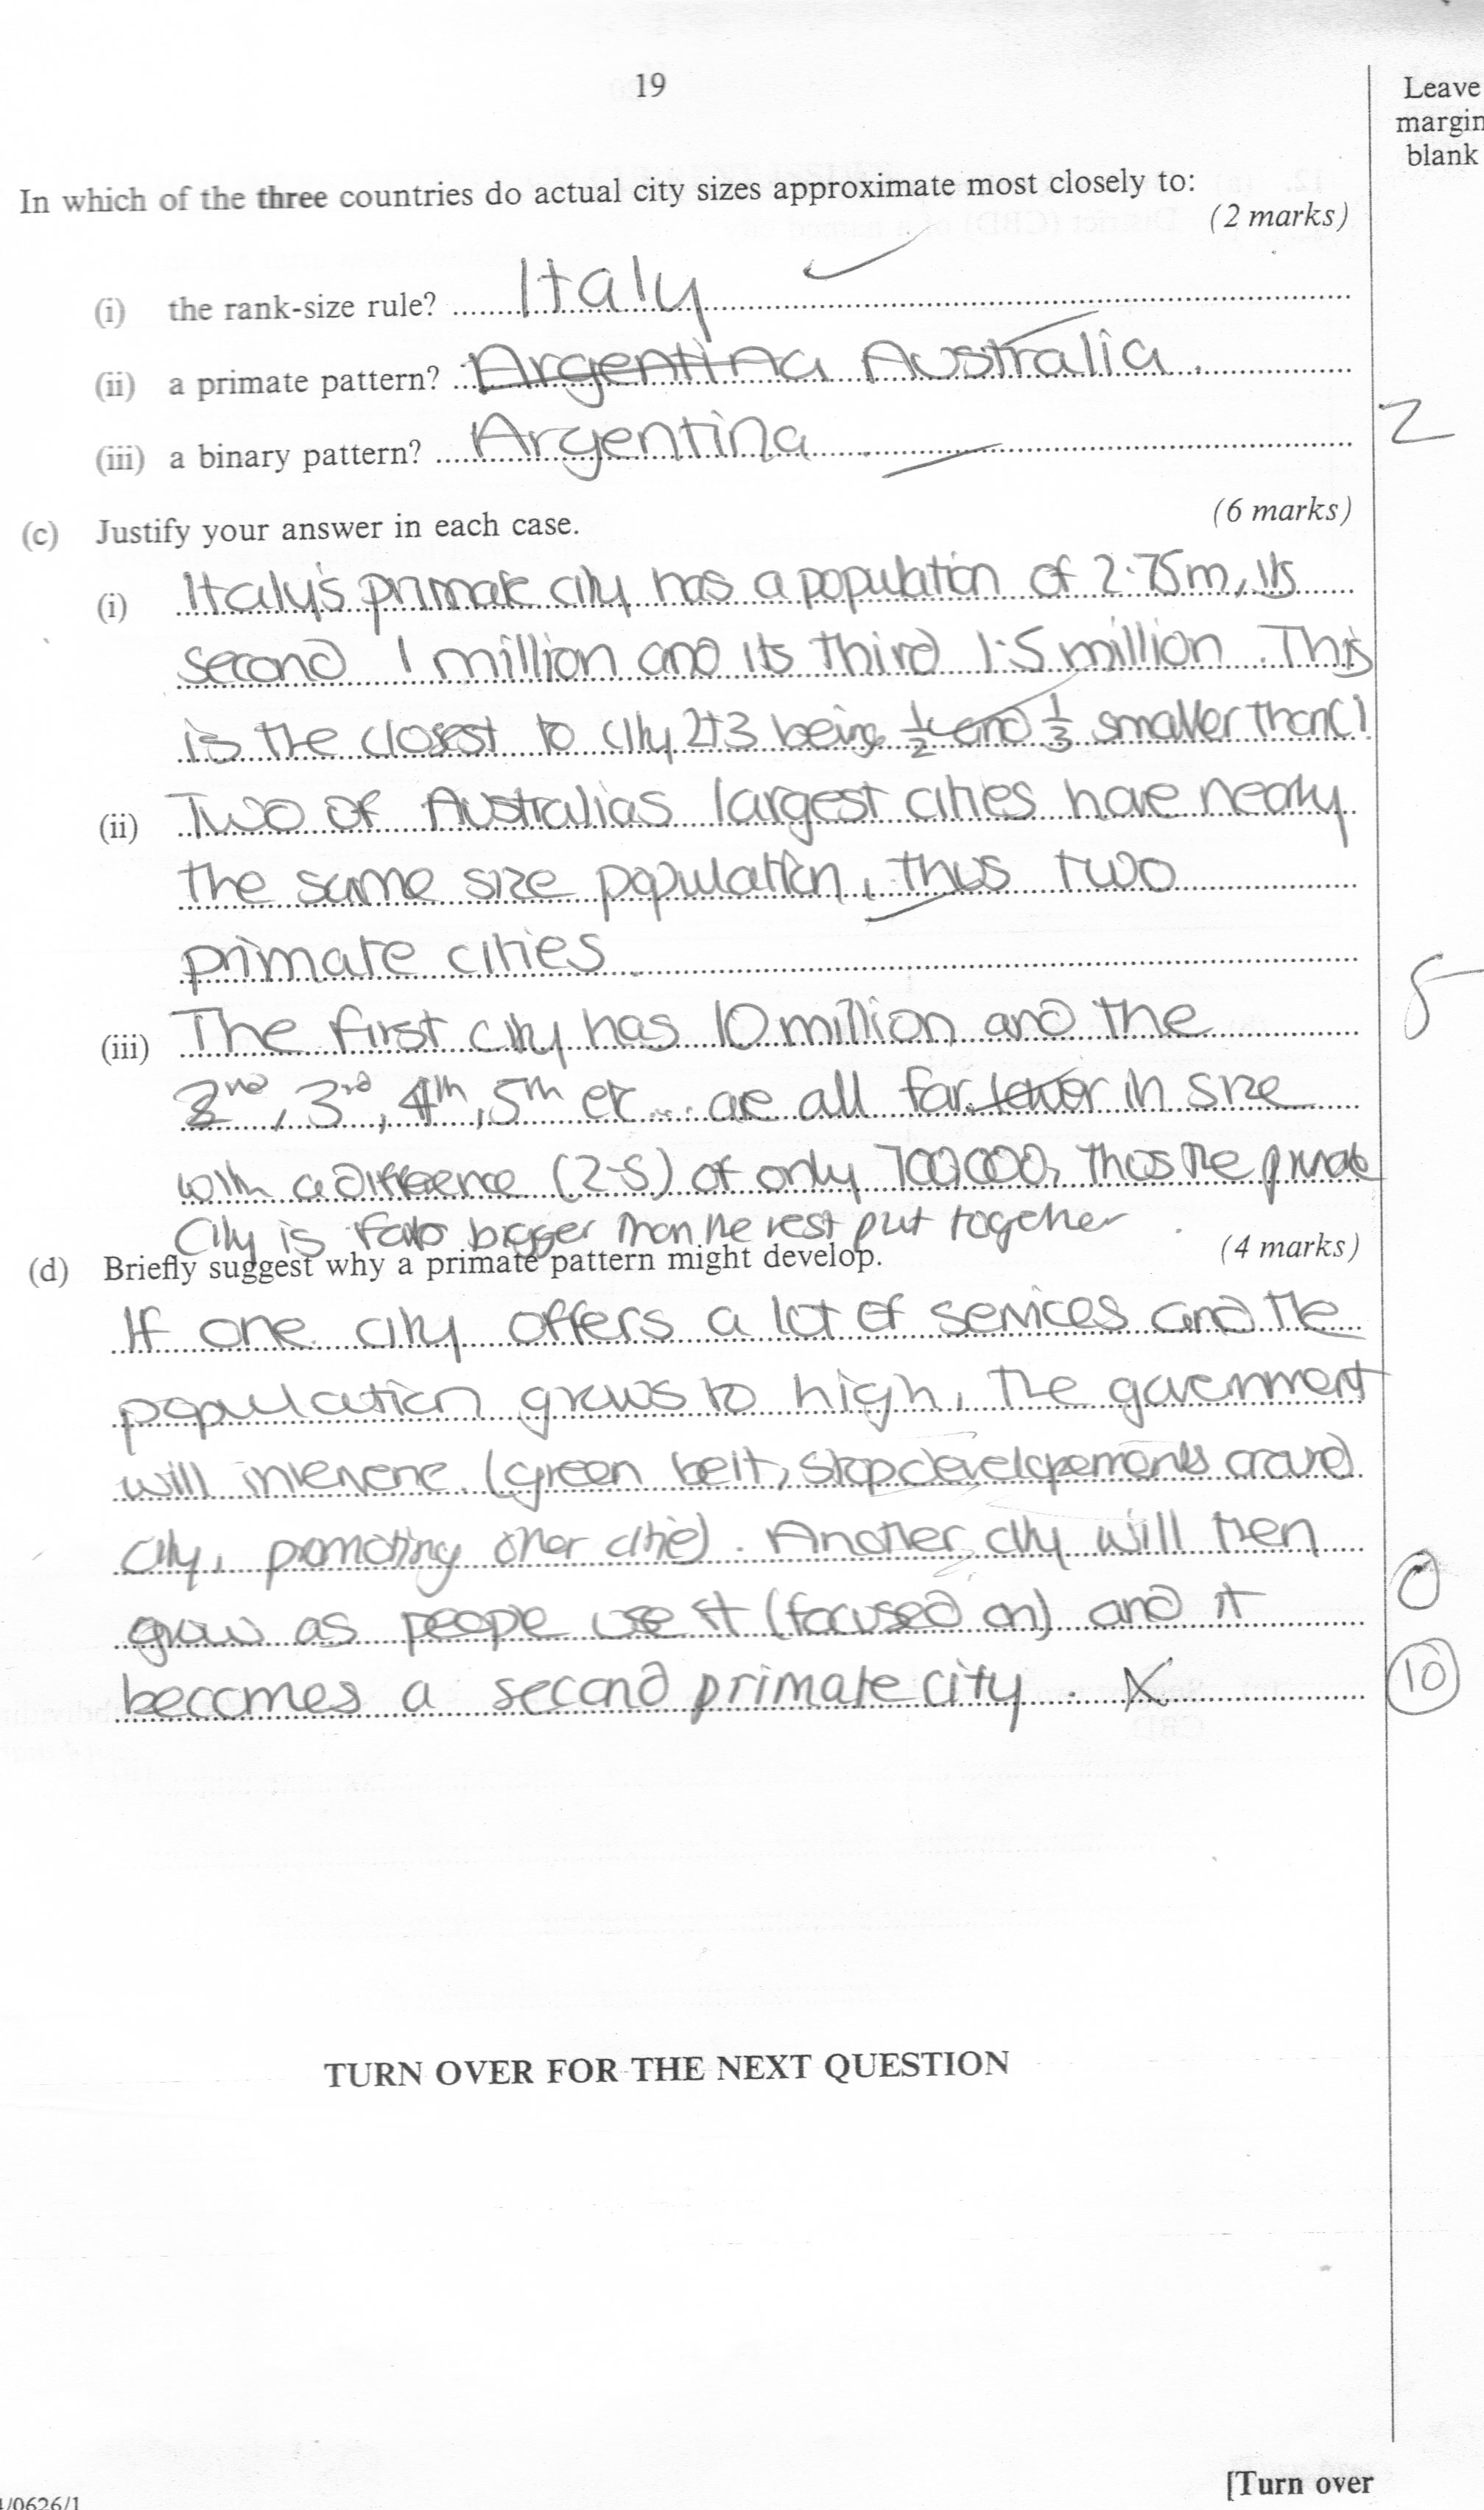 19
Leave
margin
blank
In which of the three countries do actual city sizes approximate most closely to:
(2 marks)
(i) the rank-size rule? Italy
(ii) a primate pattern? Argentina Australia
(iii) a binary pattern? Argentina
2
(c) Justify your answer in each case. (6 marks)
(i) Italy's primate city has a population of 2.75m, its
second 1 million and its third 1.5 million. This
is the closest to city 2+3 being ½ and ⅓ smaller than C1
(ii) Two of Australias largest cities have nearly
the same size population, thus two
primate cities
(iii) The first city has 10 million and the
2nd, 3rd, 4th, 5th etc... are all far lower in size
with a difference (2-5) of only 700,000, thus the primate
City is far bigger than the rest put together.
(d) Briefly suggest why a primate pattern might develop. (4 marks)
If one city offers a lot of services and the
population grows to high, the government
will intervene. (green belt, stop developements around
city, promoting other citie). Another city will then
grow as peope use it (focused on) and it
becomes a second primate city.
0
10
TURN OVER FOR THE NEXT QUESTION
[Turn over
/0626/1